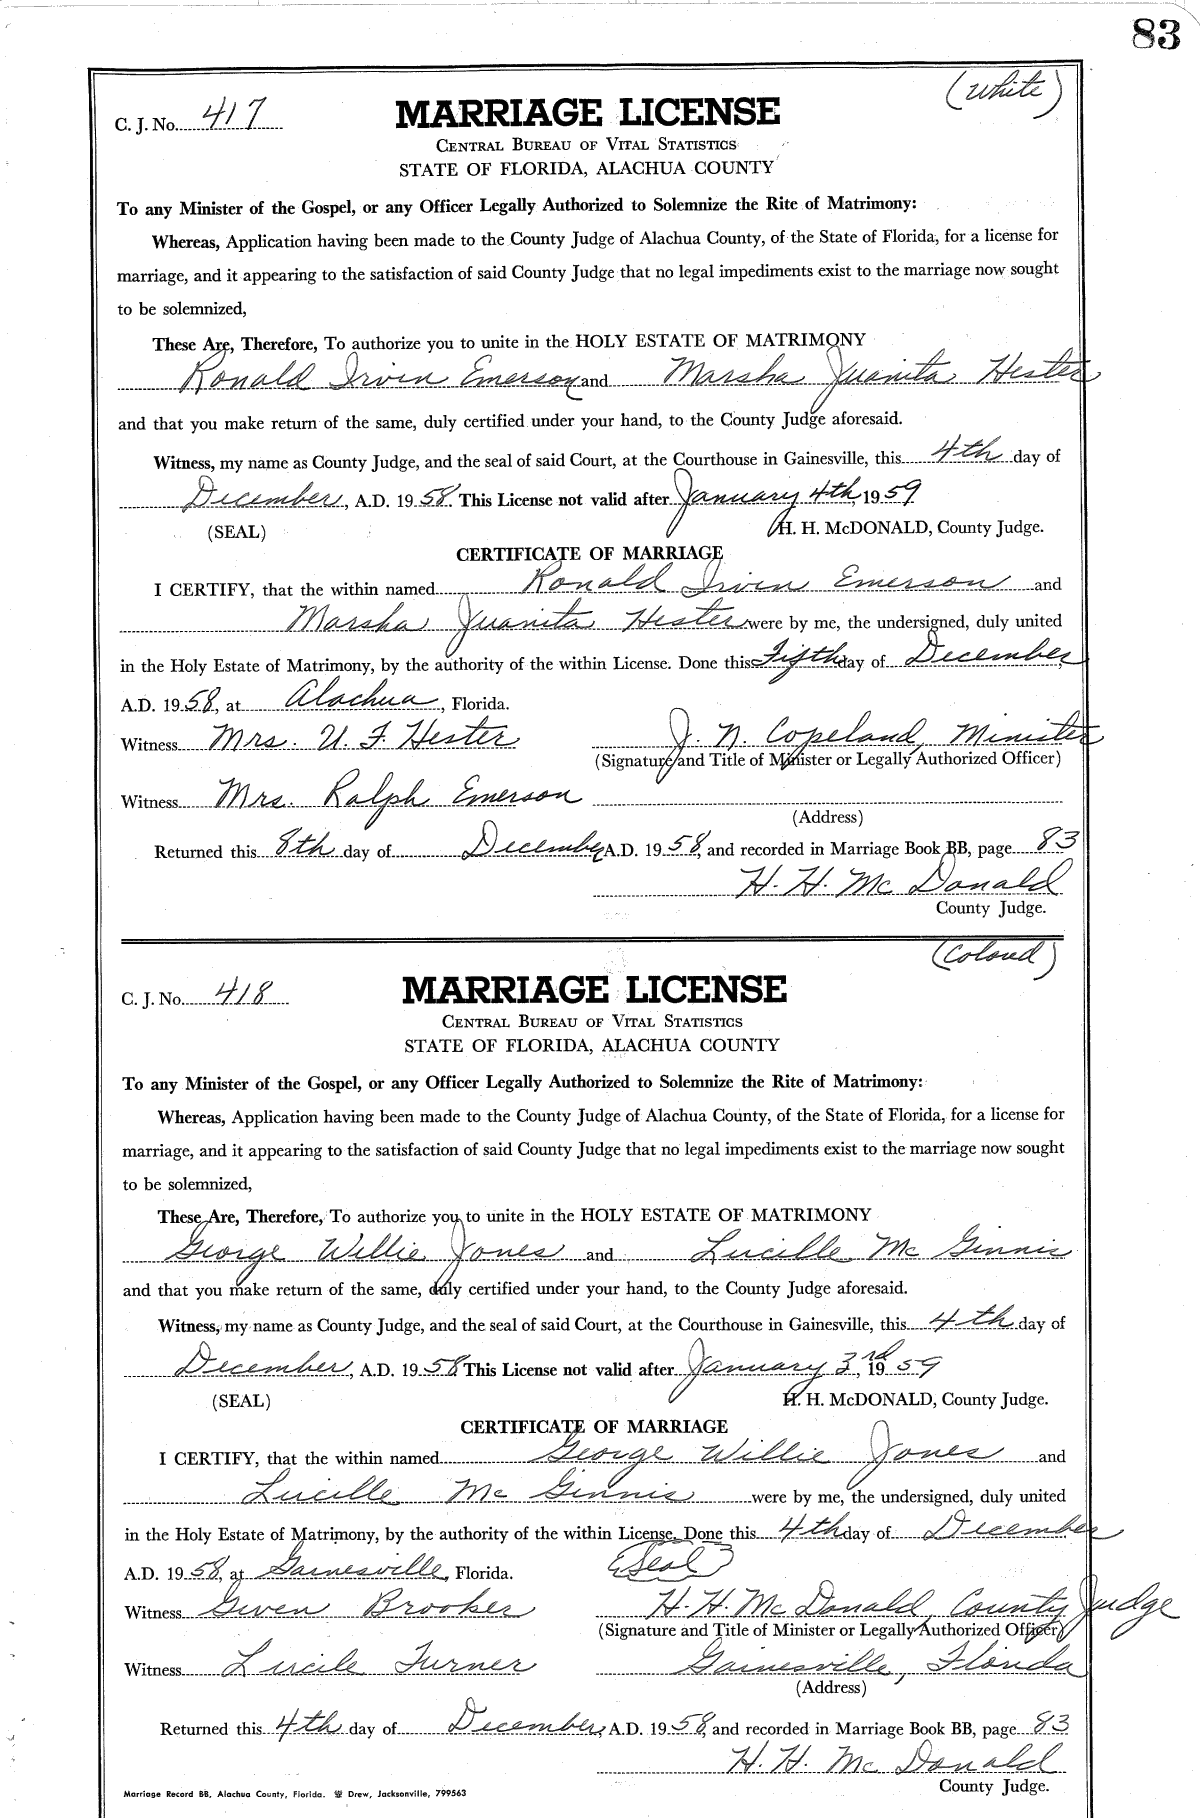 83
(White)
C. J. No. 417
MARRIAGE LICENSE
CENTRAL BUREAU OF VITAL STATISTICS
STATE OF FLORIDA, ALACHUA COUNTY
To any Minister of the Gospel, or any Officer Legally Authorized to Solemnize the Rite of Matrimony:
Whereas, Application having been made to the County Judge of Alachua County, of the State of Florida, for a license for
marriage, and it appearing to the satisfaction of said County Judge that no legal impediments exist to the marriage now sought
to be solemnized,
These Are, Therefore, To authorize you to unite in the HOLY ESTATE OF MATRIMONY
Ronald Irvin Emerson and Marsha Juanita Hester
and that you make return of the same, duly certified under your hand, to the County Judge aforesaid.
Witness, my name as County Judge, and the seal of said Court, at the Courthouse in Gainesville, this 4th day of
December, A.D. 1958. This License not valid after January 4th, 1959
(SEAL) H. H. McDONALD, County Judge.
CERTIFICATE OF MARRIAGE
I CERTIFY, that the within named Ronald Irvin Emerson and
Marsha Juanita Hester were by me, the undersigned, duly united
in the Holy Estate of Matrimony, by the authority of the within License. Done this Fifth day of December,
A.D. 1958, at Alachua, Florida.
Witness Mrs. U. F. Hester J. N. Copeland, Minister
(Signature and Title of Minister or Legally Authorized Officer)
Witness Mrs. Ralph Emerson
(Address)
Returned this 8th day of December A.D. 1958, and recorded in Marriage Book BB, page 83
H. H. McDonald
County Judge.
(Colored)
C. J. No. 418
MARRIAGE LICENSE
CENTRAL BUREAU OF VITAL STATISTICS
STATE OF FLORIDA, ALACHUA COUNTY
To any Minister of the Gospel, or any Officer Legally Authorized to Solemnize the Rite of Matrimony:
Whereas, Application having been made to the County Judge of Alachua County, of the State of Florida, for a license for
marriage, and it appearing to the satisfaction of said County Judge that no legal impediments exist to the marriage now sought
to be solemnized,
These Are, Therefore, To authorize you to unite in the HOLY ESTATE OF MATRIMONY
George Willie Jones and Lucille McGinnis
and that you make return of the same, duly certified under your hand, to the County Judge aforesaid.
Witness, my name as County Judge, and the seal of said Court, at the Courthouse in Gainesville, this 4th day of
December, A.D. 1958 This License not valid after January 3rd, 1959
(SEAL) H. H. McDONALD, County Judge.
CERTIFICATE OF MARRIAGE
I CERTIFY, that the within named George Willie Jones and
Lucille McGinnis were by me, the undersigned, duly united
in the Holy Estate of Matrimony, by the authority of the within License. Done this 4th day of December
A.D. 1958, at Gainesville, Florida. (Seal)
Witness Gwen Brooker H. H. McDonald, County Judge
(Signature and Title of Minister or Legally Authorized Officer)
Witness Lucile Turner Gainesville, Florida
(Address)
Returned this 4th day of December, A.D. 1958, and recorded in Marriage Book BB, page 83
H. H. McDonald
County Judge.
Marriage Record BB, Alachua County, Florida. Drew, Jacksonville, 799563